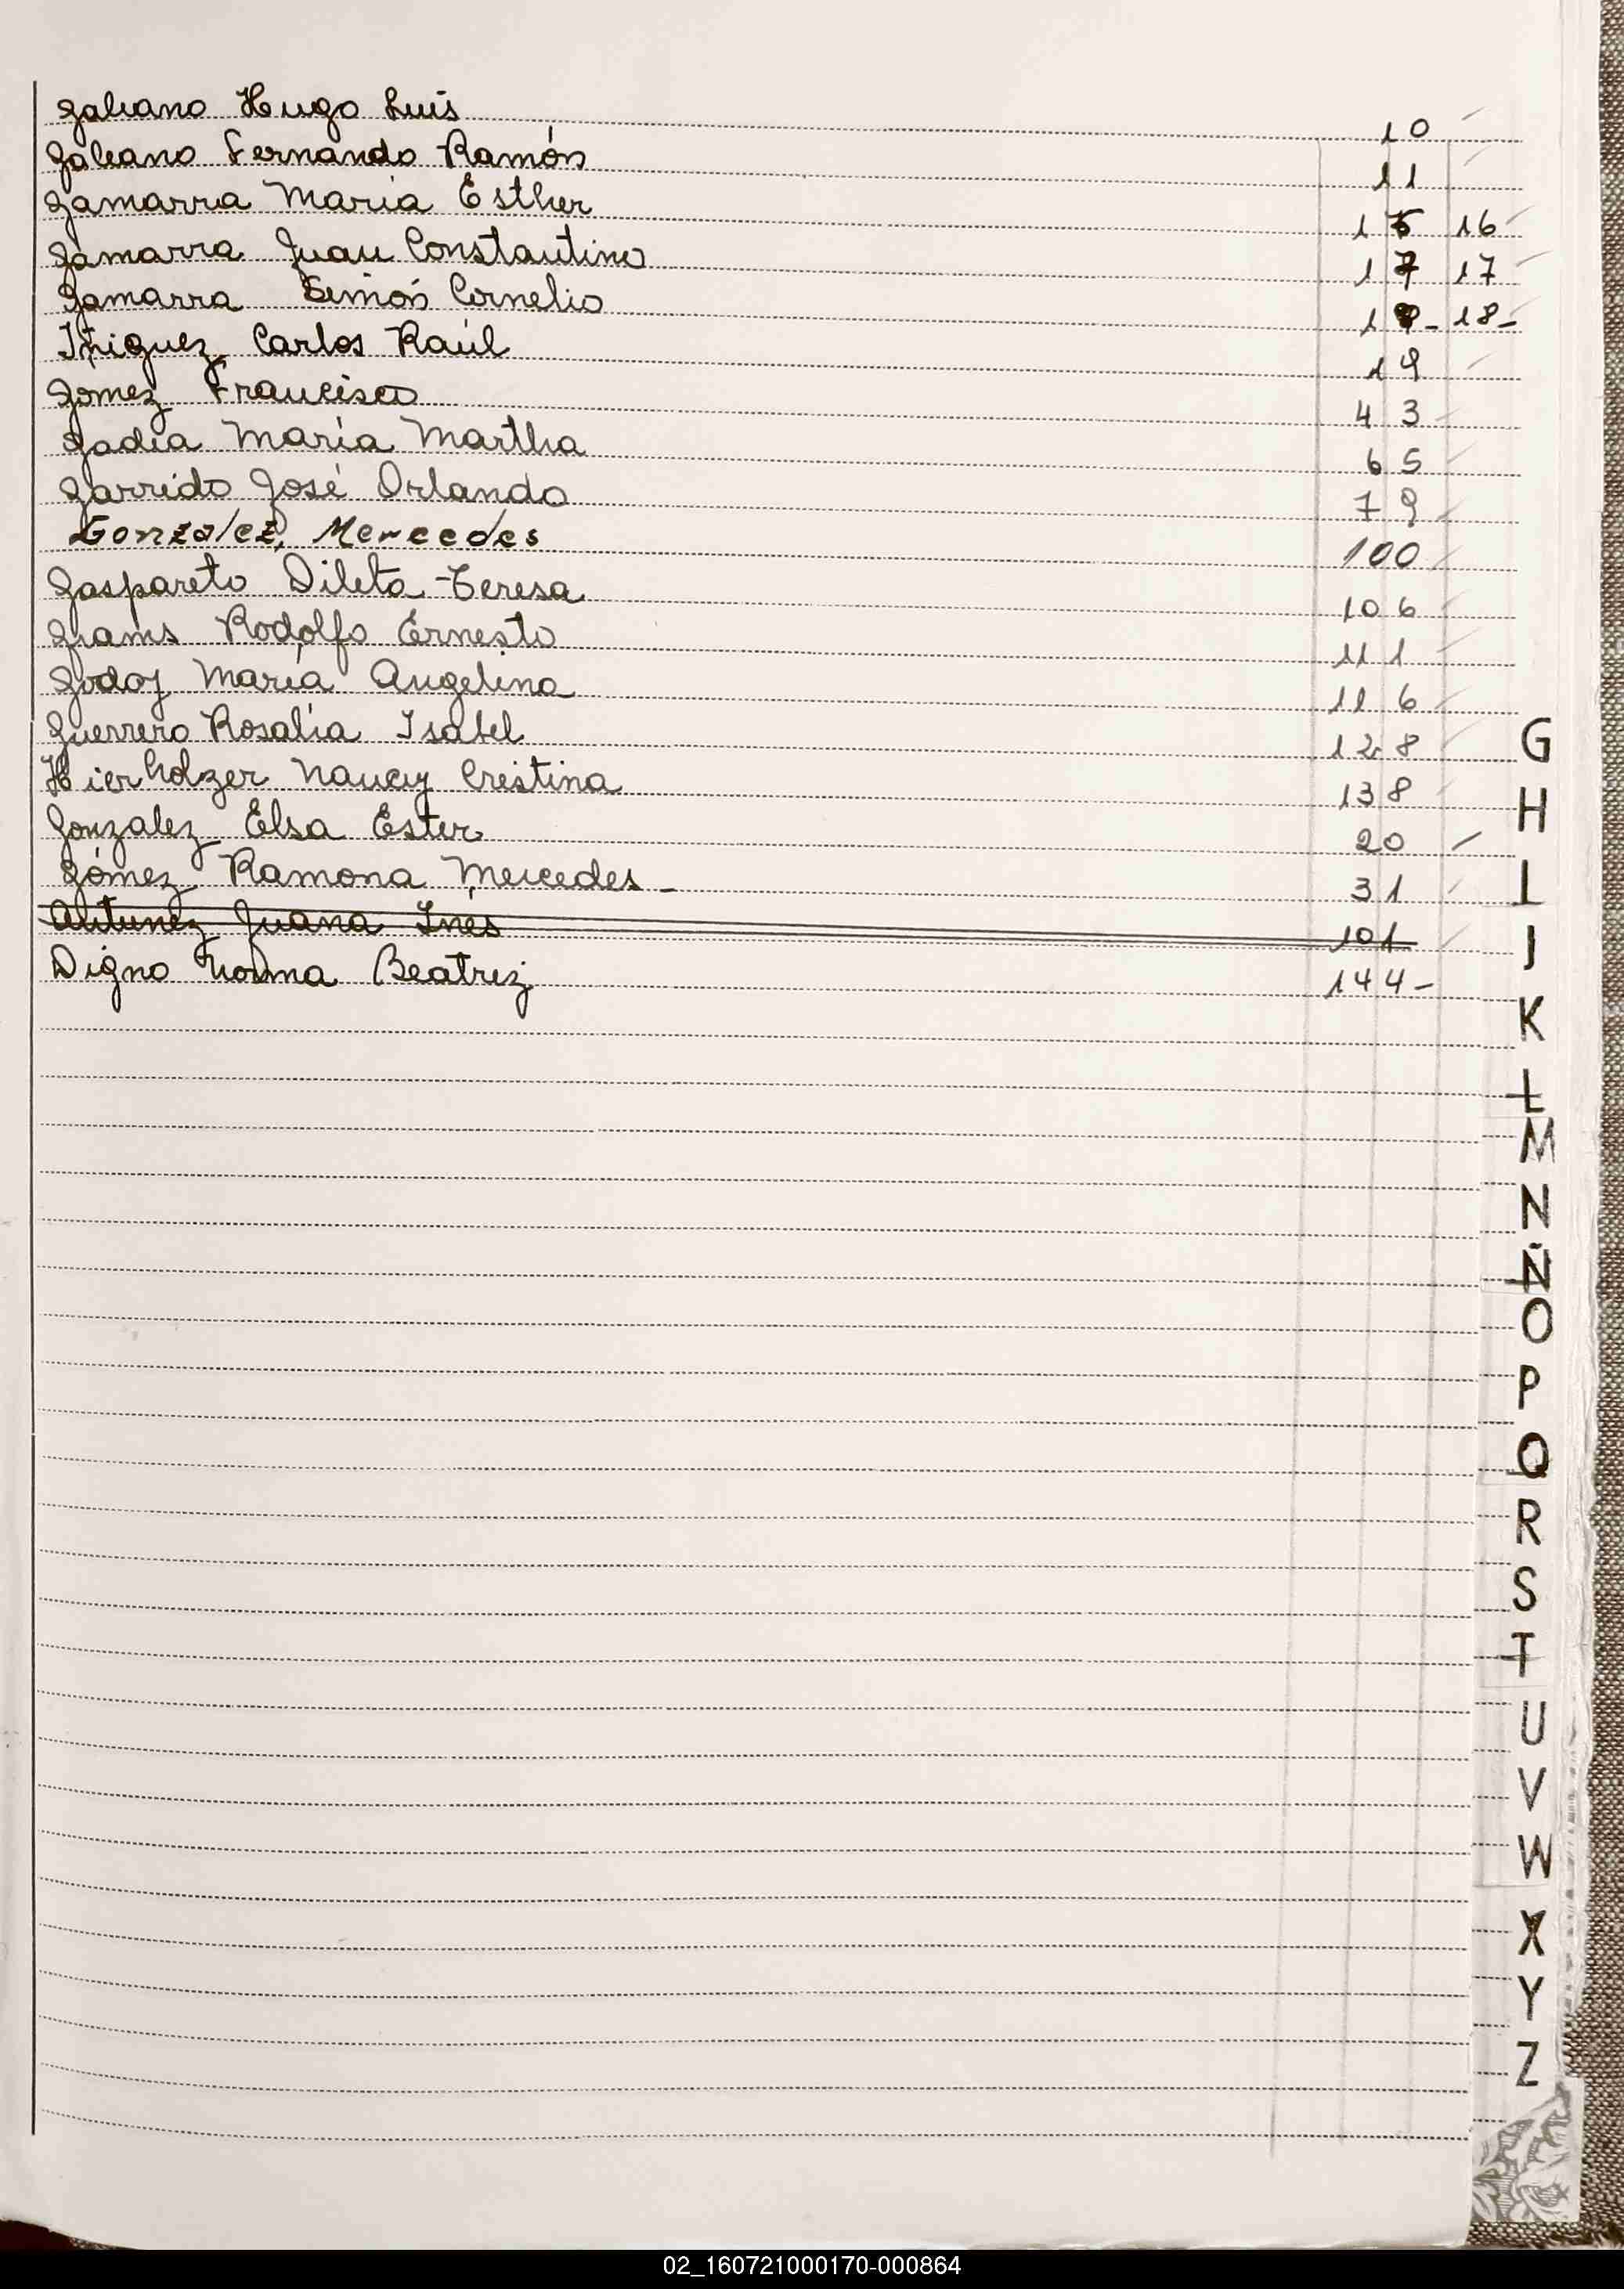 Galeano Hugo Luis 10
Galeano Fernando Ramón 11
Gamarra Maria Esther 16 16
Gamarra Juan Constantino 17 17
Gamarra Simón Cornelio 18- 18-
Iñiguez Carlos Raúl 19
Gomez Francisco 43
Gadea María Martha 65
Garrido José Orlando 79
Gonzalez, Mercedes 100
Gaspareto Dileta Teresa 106
Grams Rodolfo Ernesto 111
Godoy María Angelina 116
Guerrero Rosalía Isabel 128
Hierholzer Nancy Cristina 138
Gonzalez Elsa Ester 20
Gómez Ramona Mercedes - 31
Antunez Juana Inés 101
Digno Norma Beatriz 144-
G
H
I
J
K
L
M
N
Ñ
O
P
Q
R
S
T
U
V
W
X
Y
Z
02_160721000170-000864